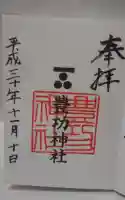 奉拝
豊功神社
平成三十年十一月十日